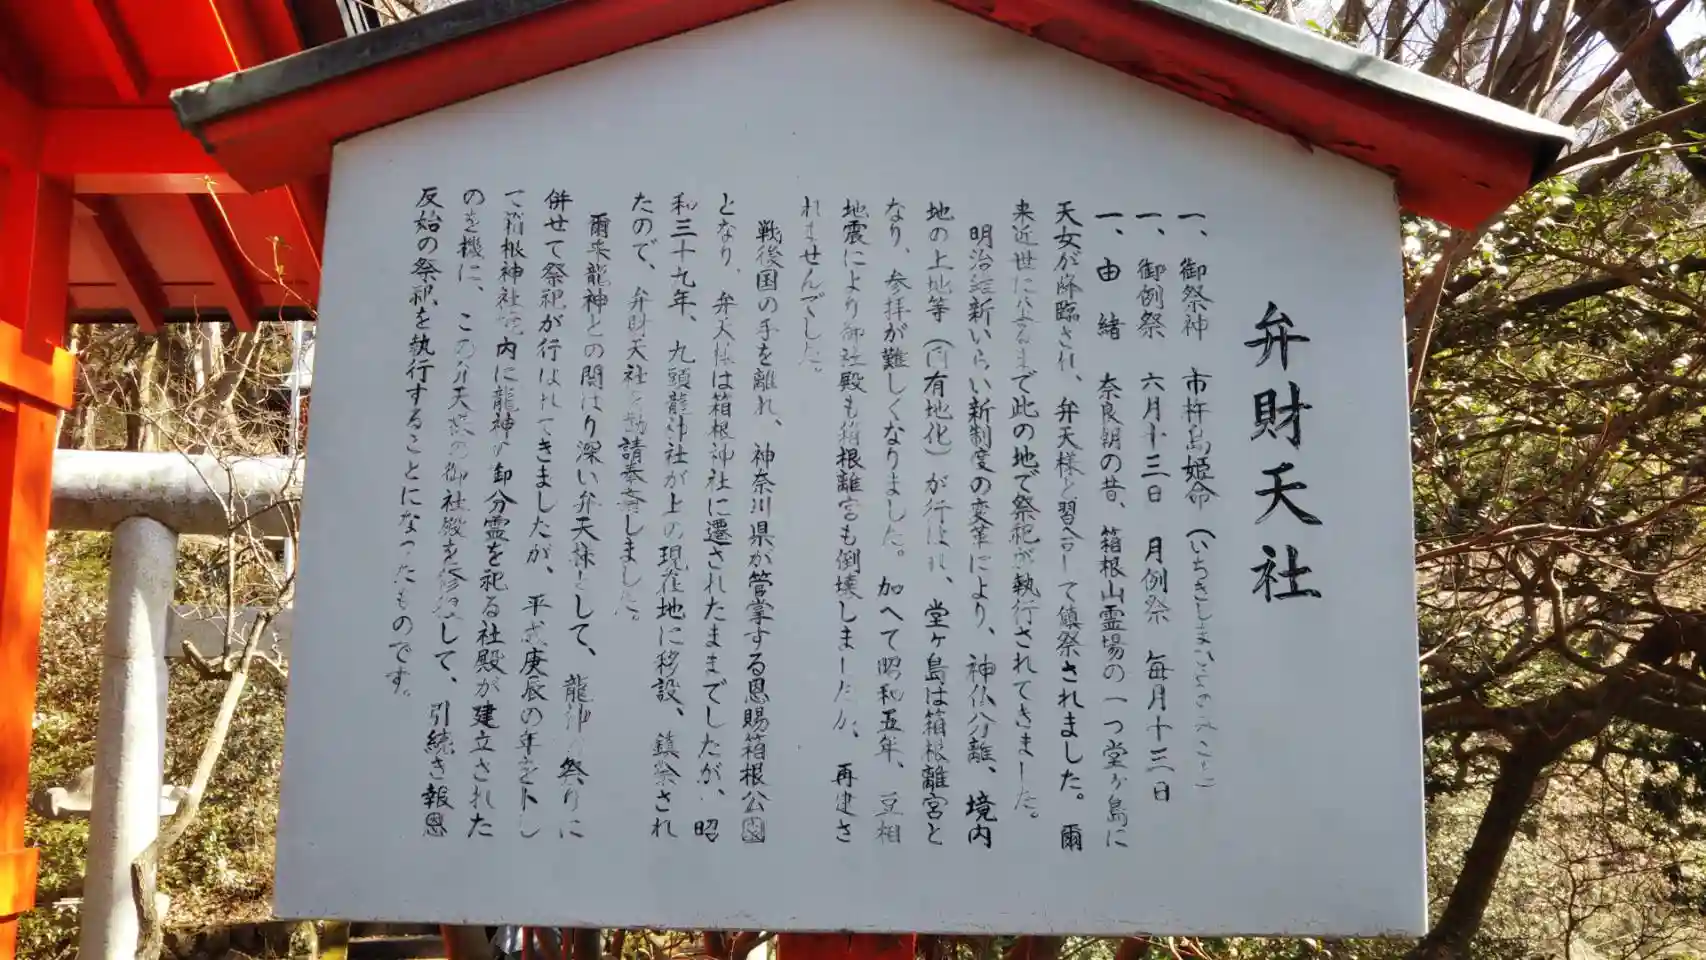 弁財天社
一、御祭神 市杵島姫命（いちきしまひめのみこと）
一、御例祭 六月十三日 月例祭 毎月十三日
一、由緒 奈良朝の昔、箱根山霊場の一つ堂ヶ島に
天女が降臨され、弁天様と習合して鎮祭されました。爾
来近世に至るまで此の地で祭祀が執行されてきました。
明治維新いらい新制度の変革により、神仏分離、境内
地の上地等（国有地化）が行はれ、堂ヶ島は箱根離宮と
なり、参拝が難しくなりました。加へて昭和五年、豆相
地震により御社殿も箱根離宮も倒壊しましたが、再建さ
れませんでした。
戦後国の手を離れ、神奈川県が管掌する恩賜箱根公園
となり、弁天様は箱根神社に遷されたままでしたが、昭
和三十九年、九頭龍神社が上の現在地に移設、鎮祭され
たので、弁財天社を勧請奉斎しました。
爾来龍神との関はり深い弁天様として、龍神の祭りに
併せて祭祀が行はれてきましたが、平成庚辰の年を卜し
て箱根神社境内に龍神の御分霊を祀る社殿が建立された
のを機に、この弁天様の御社殿を修復して、引続き報恩
反始の祭祀を執行することになったものです。